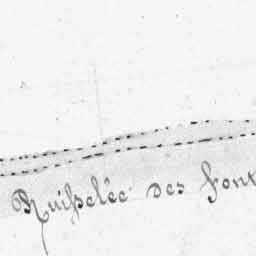 Ruisselée des font